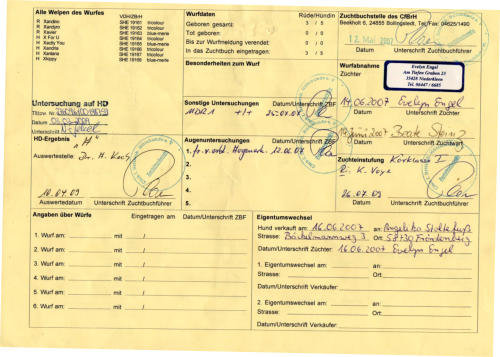 Alle Welpen des Wurfes VDH/ZBH#
R Xandini SHE 19160 tricolour
R Xandjaro SHE 19161 tricolour
R Xavier SHE 19162 blue-merle
R X For U SHE 19163 blue-merle
H Xactly You SHE 19164 blue-merle
H Xandria SHE 19165 tricolour
H Xantana SHE 19166 tricolour
H Xkippy SHE 19167 blue-merle
Wurfdaten Rüde/Hündin
Geboren gesamt: 3 / 5
Tot geboren 0 / 0
Bis zur Wurfmeldung verendet: 0 / 0
In das Zuchtbuch eingetragen: 3 / 5
Besonderheiten zum Wurf
Zuchtbuchstelle des CfBrH
Beekholt 6, 24885 Bollingstedt, Tel/Fax: 04625/1490
12. Mai 2007
Datum Unterschrift Zuchtbuchführer
Wurfabnahme
Züchter
Evelyn Engel
Am Tiefen Graben 23
35428 Niederkleen
Tel. 06447 / 6685
14.06.2007 Evelyn Engel
Datum Unterschrift Züchter
Juni 2007 Beate
Datum Unterschrift Zuchtwart
Untersuchung auf HD
Tätow. Nr.
Datum
Unterschrift
HD-Ergebnis "A"
Auswertestelle: Dr. H. Koch
18.04.09
Auswertedatum Unterschrift Zuchtbuchführer
Sonstige Untersuchungen Datum/Unterschrift ZBF
MDR1 +/+
Augenuntersuchungen Datum/Unterschrift ZBF
1. fr. v. erbl. 12.06.07
2.
3.
4.
5.
Zuchteinstufung Körklasse I
R. K. Voye
26.04.09
Datum Unterschrift Zuchtbuchführer
Angaben über Würfe Eingetragen am Datum/Unterschrift ZBF
1. Wurf am: mit /
2. Wurf am: mit /
3. Wurf am: mit /
4. Wurf am: mit /
5. Wurf am: mit /
6. Wurf am: mit /
Eigentumswechsel
Hund verkauft am: 16.06.2007 an: Angelika
Strasse: 3 Ort: 58730 Fröndenberg
Datum/Unterschrift Züchter: 16.06.2007 Evelyn Engel
1. Eigentumswechsel am: an:
Strasse: Ort:
Datum/Unterschrift Verkäufer:
2. Eigentumswechsel am: an:
Strasse: Ort:
Datum/Unterschrift Verkäufer: